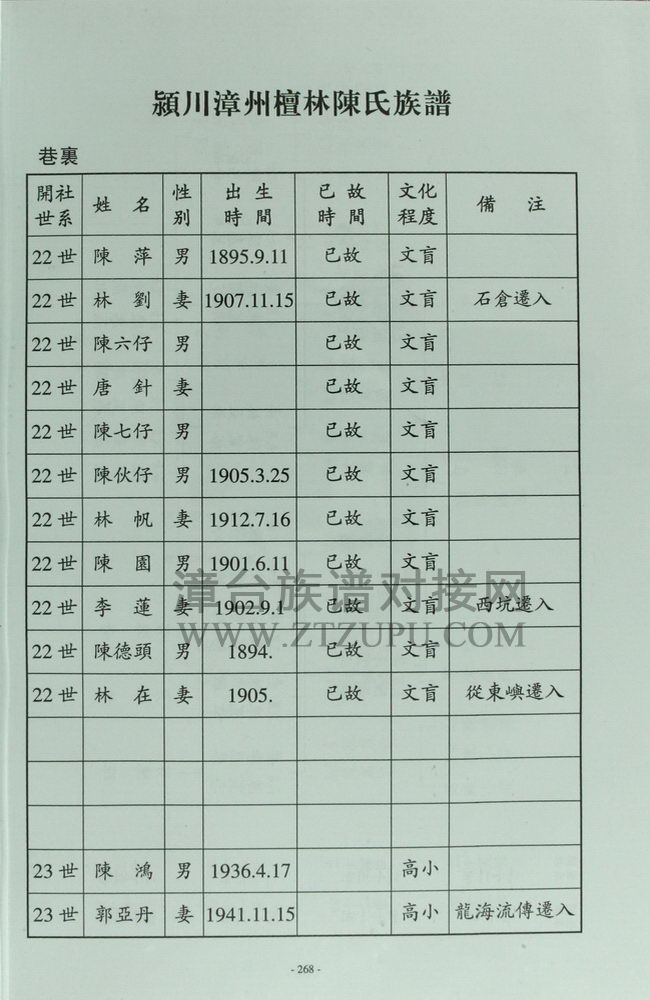 潁川漳州檀林陳氏族譜
巷裏
開社世系 姓名 性别 出生時間 已故時間 文化程度 備注
22世 陳萍 男 1895.9.11 已故 文盲
22世 林劉 妻 1907.11.15 已故 文盲 石倉遷入
22世 陳六仔 男 已故 文盲
22世 唐針 妻 已故 文盲
22世 陳七仔 男 已故 文盲
22世 陳伙仔 男 1905.3.25 已故 文盲
22世 林帆 妻 1912.7.16 已故 文盲
22世 陳園 男 1901.6.11 已故 文盲
漳台族谱对接网
22世 李蓮 妻 1902.9.1 已故 文盲 西坑遷入
WWW.ZTZUPU.COM
22世 陳德頭 男 1894. 已故 文盲
22世 林在 妻 1905. 已故 文盲 從東嶼遷入
23世 陳鴻 男 1936.4.17 高小
23世 郭亞丹 妻 1941.11.15 高小 龍海流傳遷入
- 268 -